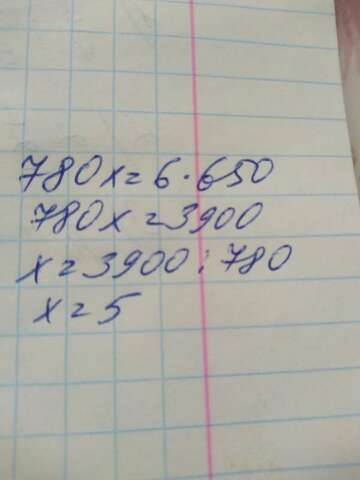 780x=6·650
780x=3900
x=3900:780
x=5